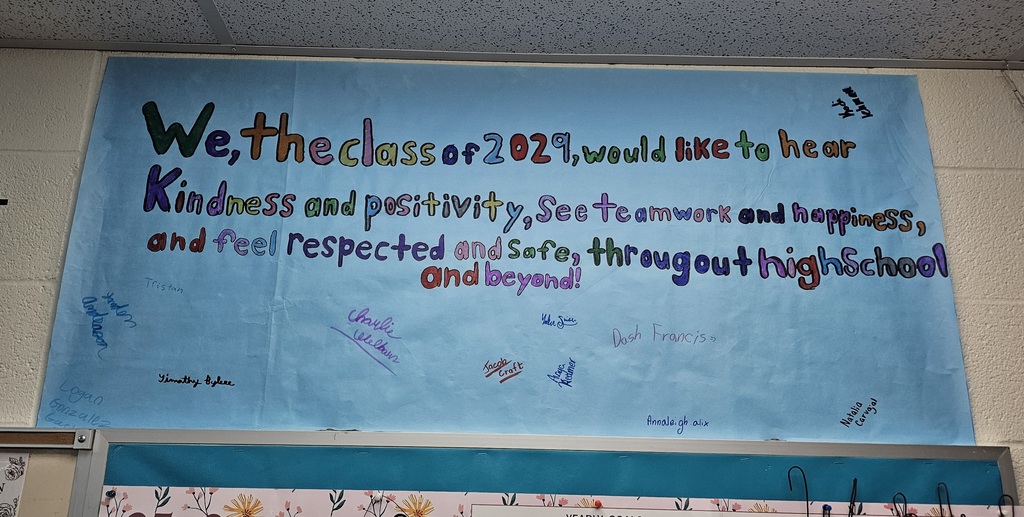 We, the class of 2029, would like to hear
Kindness and positivity, See teamwork and happiness,
and feel respected and safe, througout high School
and beyond!
Tristan
Charlie
Dash Francis
Jacob
Craft
Timothy
Logan
Gonzalez
Annaleigh alix
Natalia
Carvajal